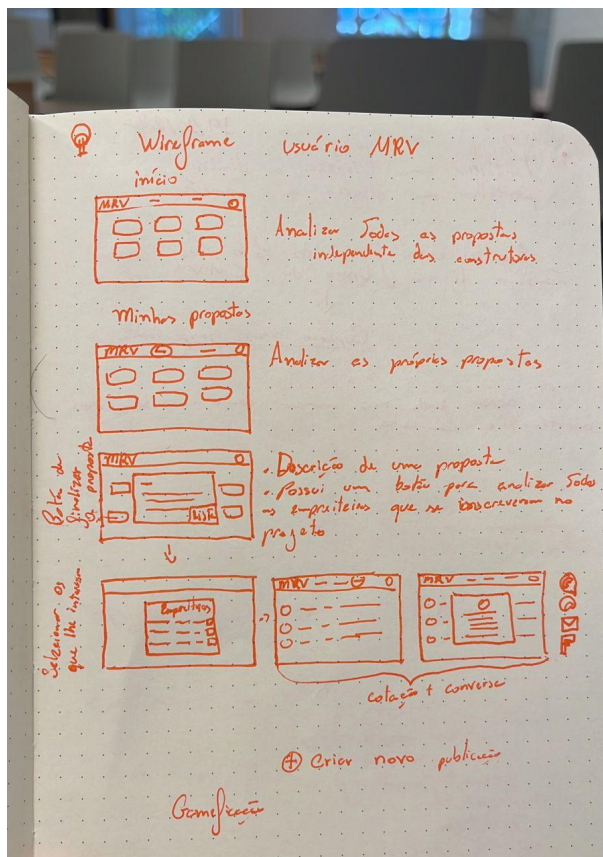 Wireframe usuário MRV
início
MRV
Analizar Todas as propostas
independente das construtoras
Minhas propostas
MRV
Analizar as próprias propostas
Botão de
finalizar
a proposta
MRV
List
• Descrição de uma proposta
• Possui um botão para analizar Todos
os empreiteiros que se inscreveram no
projeto
Selecionar os
que lhe interessa
Empreiteiros
MRV
MRV
cotação + conversa
+ Criar novo publicação
Gameficação